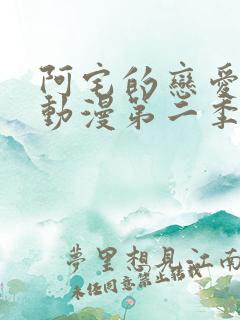 阿宅的戀愛
動漫第二季
夢里想見江南
未经同意禁止转载